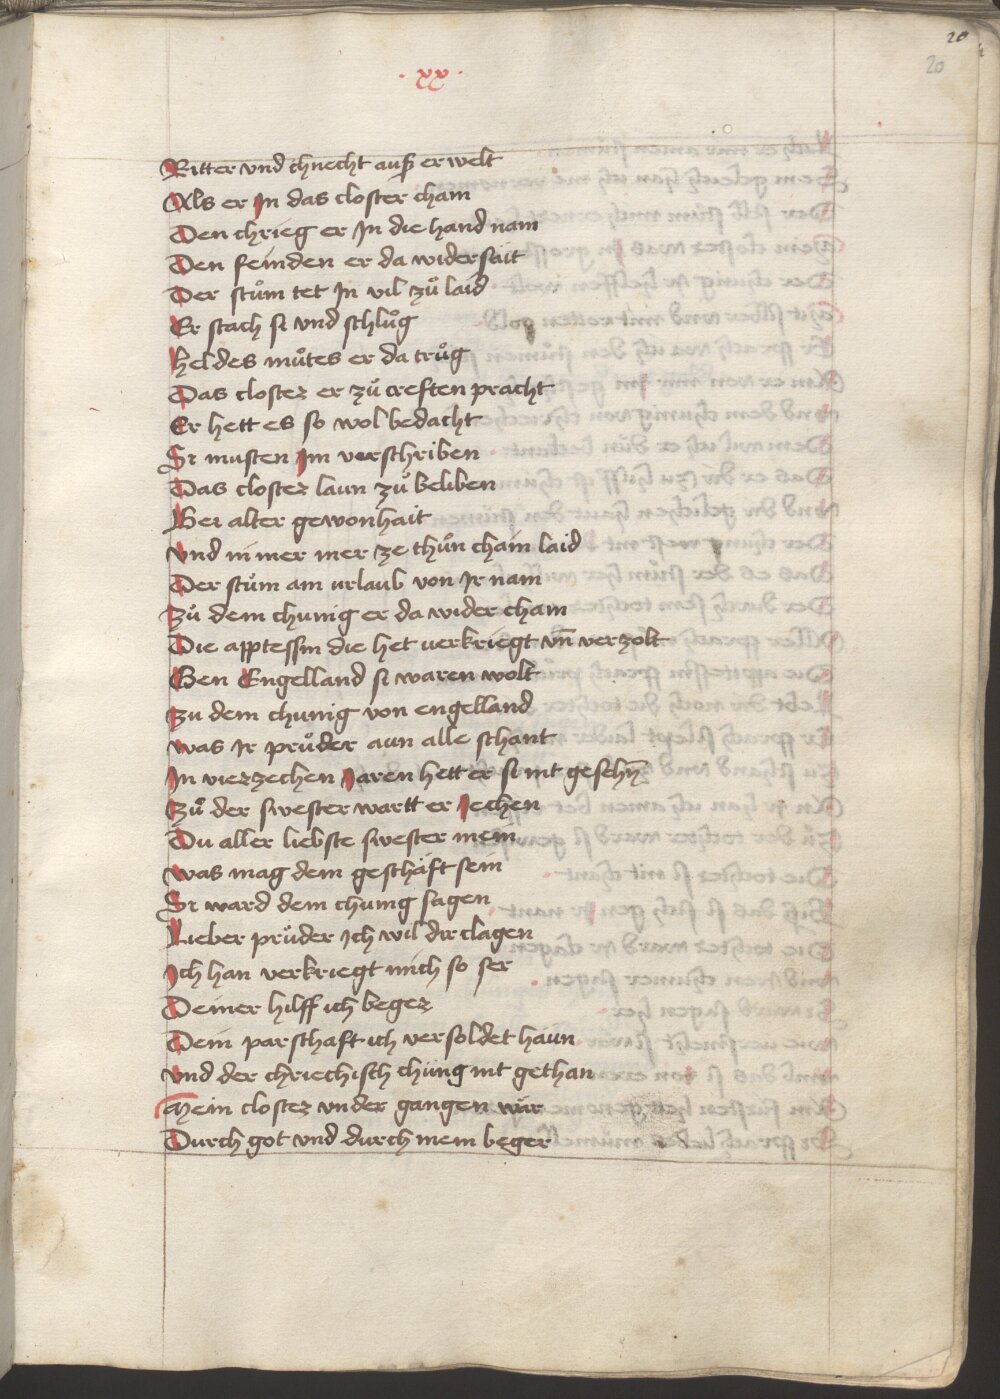 20
20
· xx ·
Ritter vnd chnecht auß erwelt
Als er Jn das closter cham
Den chrieg er Jn die hand nam
Den feinden er da widersait
Der stům tet Jn vil zů laid
Er stach si vnd schlůg
Heldes můtes er da trůg
Das closter er zů creften pracht
Er hett es so wol bedacht
Sy musten Jm verschriben
Das closter laun zů beliben
Bei alter gewonhait
vnd nimer mer ze thůn chain laid
Der stům am vrlaub von Jr nam
Zů dem chunig er da wider cham
Die apptessin die het verkriegt vn̄ verzolt
Gen Engelland si waren wolt
Zu dem chunig von engelland
was Jr průder aun alle schant
Jn vierzechen Jaren hett er si nit gesehn̄
Zů der swester wartt er Jechen
Du aller liebste swester mein
was mag dein geschäft sein
Sy ward dem chunig sagen
Lieber průder Jch wil dir clagen
Jch han verkriegt mich so ser
Deiner hilff ich beger
Dein parschaft ich versoldet haun
vnd der chriechisch chüng nit gethan
Mein closter vnder gangen wär
Durch got vnd durch mein beger